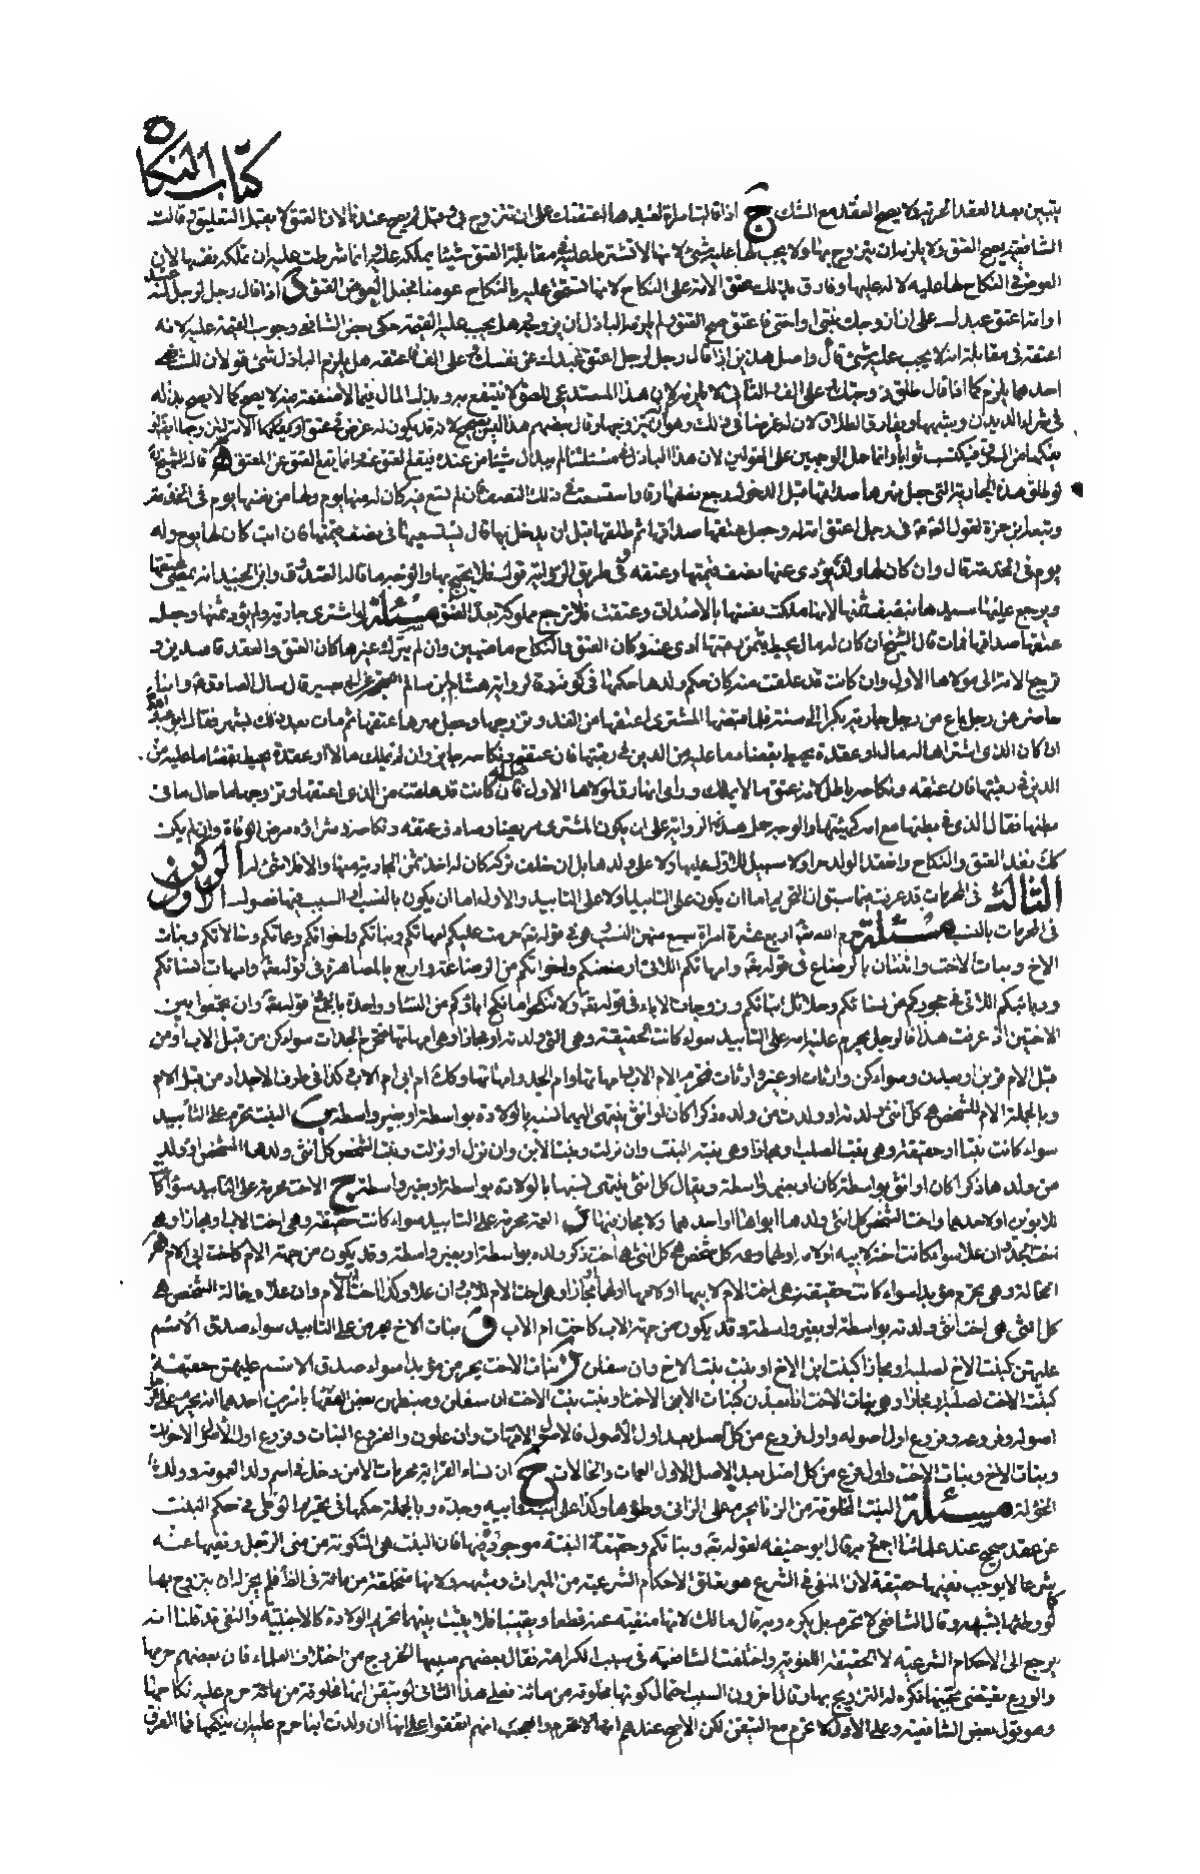 كتاب النكاح
يتبين بعد العقد الحرية ولا يصح العقد مع الشك ج اذا قالت امرأة لعبدها اعتقتك على ان تتزوج بي وقبل لم يصح عندنا لان العتق لا يقبل التعليق وقالت
الشافعية يصح العتق ولا يلزمه ان يتزوج بها ولا يجب لها عليه شيء لانها لا تشترط عليه في مقابلة العتق شيئا يملكه عليها انما شرطت عليه ان تملكه بضعها لان
العوض في النكاح لها عليه لا له عليها وفارق بذلك عتق الامة على النكاح لانها استحق عليه بالنكاح عوضا فجعل العوض العتق اذا قال رجل لرجل له عبد
او امة اعتق عبدك على ان ازوجك بنتي او اختي فاعتق صح العتق ولم يلزم الباذل ان يزوجه وهل يجب عليه القيمة حكى بعض الشافعي وجوب القيمة عليه لانه
اعتقه في مقابلة انه لا يجب عليه شيء قال واصل هذين اذا قال رجل لرجل اعتق عبدك عن نفسك على الف فاعتقه هل يلزم الباذل شيء قولان للشافعي
احدهما يلزم كما اذا قال طلق زوجتك على الف الثاني لا يلزمه لان هذا المستدعي للعتق لا ينتفع به وبذل المال فيما لا منفعة فيه لا يصح كما لا يصح بذله
لو طلق هذه الجارية التي جعل مهرها صداقها قبل الدخول رجع نصفها رقا واستسعت في ذلك النصف فان لم تسع فيه كان له منها يوم ولها من نفسها يوم في الخدمة
وتبعه ابن حمزة لقول الصادق في رجل اعتق امته وجعل عتقها صداقها ثم طلقها قبل ان يدخل بها قال يستسعيها في نصف قيمتها فان ابت كان لها يوم وله
يوم في الخدمة قال وان كان لها ولد يؤدي عنها نصف قيمتها وعتقه في طريق الرواية
ويرجع عليها سيدها بنصف قيمتها لانها ملكت نفسها بالاصداق وعتقت فلا ترجع مملوكة بعد العتق مسئلة لو اشترى جارية ولم يؤد ثمنها وجعل
عتقها صداقها فمات قال الشيخ ان كان له مال يحيط بثمن رقبتها ادى عنه وكان العتق والنكاح ماضيين وان لم يترك غيرها كان العتق والعقد فاسدين و
ترجع الامة الى مولاها الاول وان كانت قد علقت منه كان حكم ولدها حكمها في كونه رقا لرواية هشام بن سالم
حاضر عن رجل باع من رجل جارية بكرا الى سنة فلما قبضها المشتري اعتقها من الغد وتزوجها وجعل مهرها عتقها ثم مات بعد ذلك بشهر فقال
ان كان الذي اشتراها له مال او عقدة يحيط بقضاء ما عليه من الدين في رقبتها فان عتقه ونكاحه جايز وان لم يملك مالا او عقدة يحيط بقضاء ما عليه من
الدين في رقبتها فان عتقه ونكاحه باطل لانه عتق ما لا يملك وارى انها رق لمولاها الاول قيل له فان كانت قد علقت من الذي اعتقها وتزوجها ما حال ما في
بطنها فقال الذي في بطنها مع امه كهيئتها والوجه حمل هذه الرواية على ان يكون المشتري مريضا وصادف عتقه ونكاحه وشراؤه مرض الوفاة وان لم يكن
كك نفذ العتق والنكاح وانعقد الولد حرا ولا سبيل للاول عليها ولا على ولدها بل ان خلف تركة كان له اخذ ثمن الجارية منها والا فلا شيء له الركن
الثالث في المحرمات قد عرفت فيما سبق ان التحريم اما ان يكون على التأبيد او لا على التأبيد والاول اما ان يكون بالنسب او السبب فهنا فصول الاول
في المحرمات بالنسب مسئلة حرم الله تعالى اربع عشرة امرأة سبع منهن النسب في قوله تعالى حرمت عليكم امهاتكم وبناتكم واخواتكم وعماتكم وخالاتكم وبنات
الاخ وبنات الاخت واثنتان بالرضاع في قوله تعالى وامهاتكم اللاتي ارضعنكم واخواتكم من الرضاعة واربع بالمصاهرة في قوله تعالى وامهات نسائكم
وربائبكم اللاتي في حجوركم من نسائكم وحلائل ابنائكم وزوجات الاباء في قوله تعالى ولا تنكحوا ما نكح اباؤكم من النساء وواحدة بالجمع قوله تعالى وان تجمعوا بين
الاختين اذا عرفت هذا فالرجل يحرم عليه امه على التأبيد سواء كانت حقيقة وهي التي ولدته او مجازا وهي امهاتها فتخرج الجدات سواء كن من قبل الاب او من
قبل الام قربن او بعدن وسواء كن وارثات او غير وارثات فتحرم ام الاب وامهاتها وام الجد وامهاتها وكك ام ابي ام الاب كذا في طرف الاجداد من قبل الام
وبالجملة الام للشخص هي كل انثى ولدته او ولدت من ولده ذكرا كان او انثى ينتهي اليها نسبه بالولادة بواسطة او بغير واسطة ب البنت تحرم على التأبيد
سواء كانت بنتا او حقيقة وهي بنت الصلب او مجازا وهي بنت البنت وان نزلت وبنت الابن وان نزل او نزلت وبنت الشخص كل انثى ولدها الشخص او ولد
من ولدها ذكرا كان او انثى بواسطة كان او بغير واسطة ويقال كل انثى ينتهي نسبها بالولادة بواسطة او بغير واسطة ج الاخت محرمة على التأبيد سواء كانت
للابوين او لاحدهما واخت الشخص كل انثى ولدها ابواها او احدهما ولا مجاز فيها د العمة محرمة على التأبيد سواء كانت حقيقة وهي اخت الاب او مجازا وهي
الخالة وهي تحرم مؤبدا سواء كانت حقيقة وهي اخت الام لابيها او لامها او لهما او مجازا وهي اخت الام للاب وان علا وكذا اخت الام وان علا وخالة الشخص هي
كل انثى هي اخت انثى ولدته بواسطة او بغير واسطة وقد يكون من جهة الاب كاخت ام الاب و بنات الاخ يحرمن على التأبيد سواء صدق الاسم
عليهن كبنت الاخ لصلبه او مجازا كبنت ابن الاخ او بنت بنت الاخ وان سفلن ز بنات الاخت يحرمن مؤبدا سواء صدق الاسم عليهن حقيقة
كبنت الاخت لصلبها او مجازا وهي بنات الاخت اذا بعدن كبنات الابن الاخت او بنت بنت الاخت وان سفلن وضبطهن بعض الفقهاء بانه
اصوله وفروعه وفروع اول اصوله واول فروع من كل اصل بعد اول الاصول فالاصول الامهات وان علون والفروع البنات وفروع اول الاصول الاخوات
وبنات الاخ وبنات الاخت واول فرع من كل اصل بعد الاصل الاول العمات والخالات ح ان نساء القرابة محرمات الا من دخل في اسم ولد العمومة وولد
الخؤلة مسئلة البنت المخلوقة من الزنا يحرم على الزاني وطؤها وكذا على ابنه وابيه وجده وبالجملة حكمها في تحريم الوطي حكم البنت
عن عقد صحيح عند علمائنا اجمع وبه قال ابو حنيفة لقوله تعالى وبناتكم وحقيقة البنتية موجودة فيها فان البنت هي المتكونة من مني الرجل ونفيها عنه
شرعا لا يوجب نفيها حقيقة لان المنفي في الشرع هو تعلق الاحكام الشرعية من الميراث وشبهه ولانها متخلقة من مائه في الظاهر فلم يجز له ان يتزوج بها
كما لو وطئها بشبهة وقال الشافعي لا تحرم بل يكره وبه قال مالك لانها منفية عنه قطعا ويقينا فلا يثبت بينهما تحريم الولادة كالاجنبية والنفي قد قلنا انه
يرجع الى الاحكام الشرعية لا الحقيقة اللغوية واختلفت الشافعية في سبب الكراهة فقال بعضهم سببها الخروج من اختلاف العلماء فان بعضهم حرمها
والورع يقتضي تجنبها فكره له التزويج بها وقال آخرون السبب احتمال كونها مخلوقة من مائه فعلى هذا الثاني لو تيقن انها مخلوقة من مائه حرم عليه نكاحها
وهو قول بعض الشافعية وعلى الاول لا تحرم مع التيقن لكن الاصح عندهم انها لا تحرم والعجب انهم اتفقوا على انها ان ولدت ابنا حرم عليه ان ينكحها فما الفرق